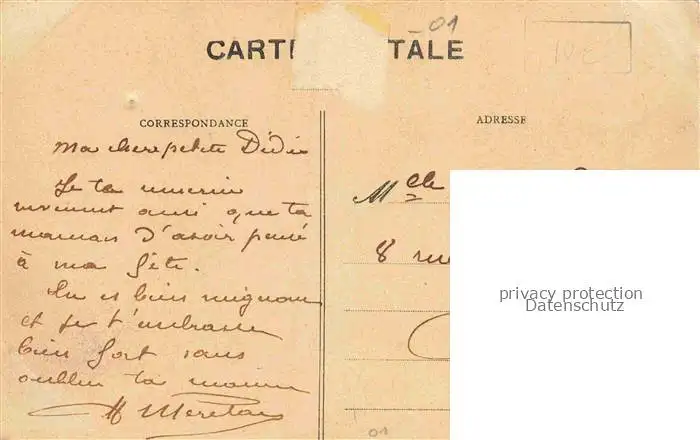 01
CARTE POSTALE
CORRESPONDANCE
ADRESSE
Ma chere petite Didie
Je te remercie
vivement ainsi que ta
maman d'avoir pensé
à ma fête.
Tu es bien mignonne
et je t'embrasse
bien fort sans
oublier ta maman
Melle
8 rue
privacy protection
Datenschutz
01